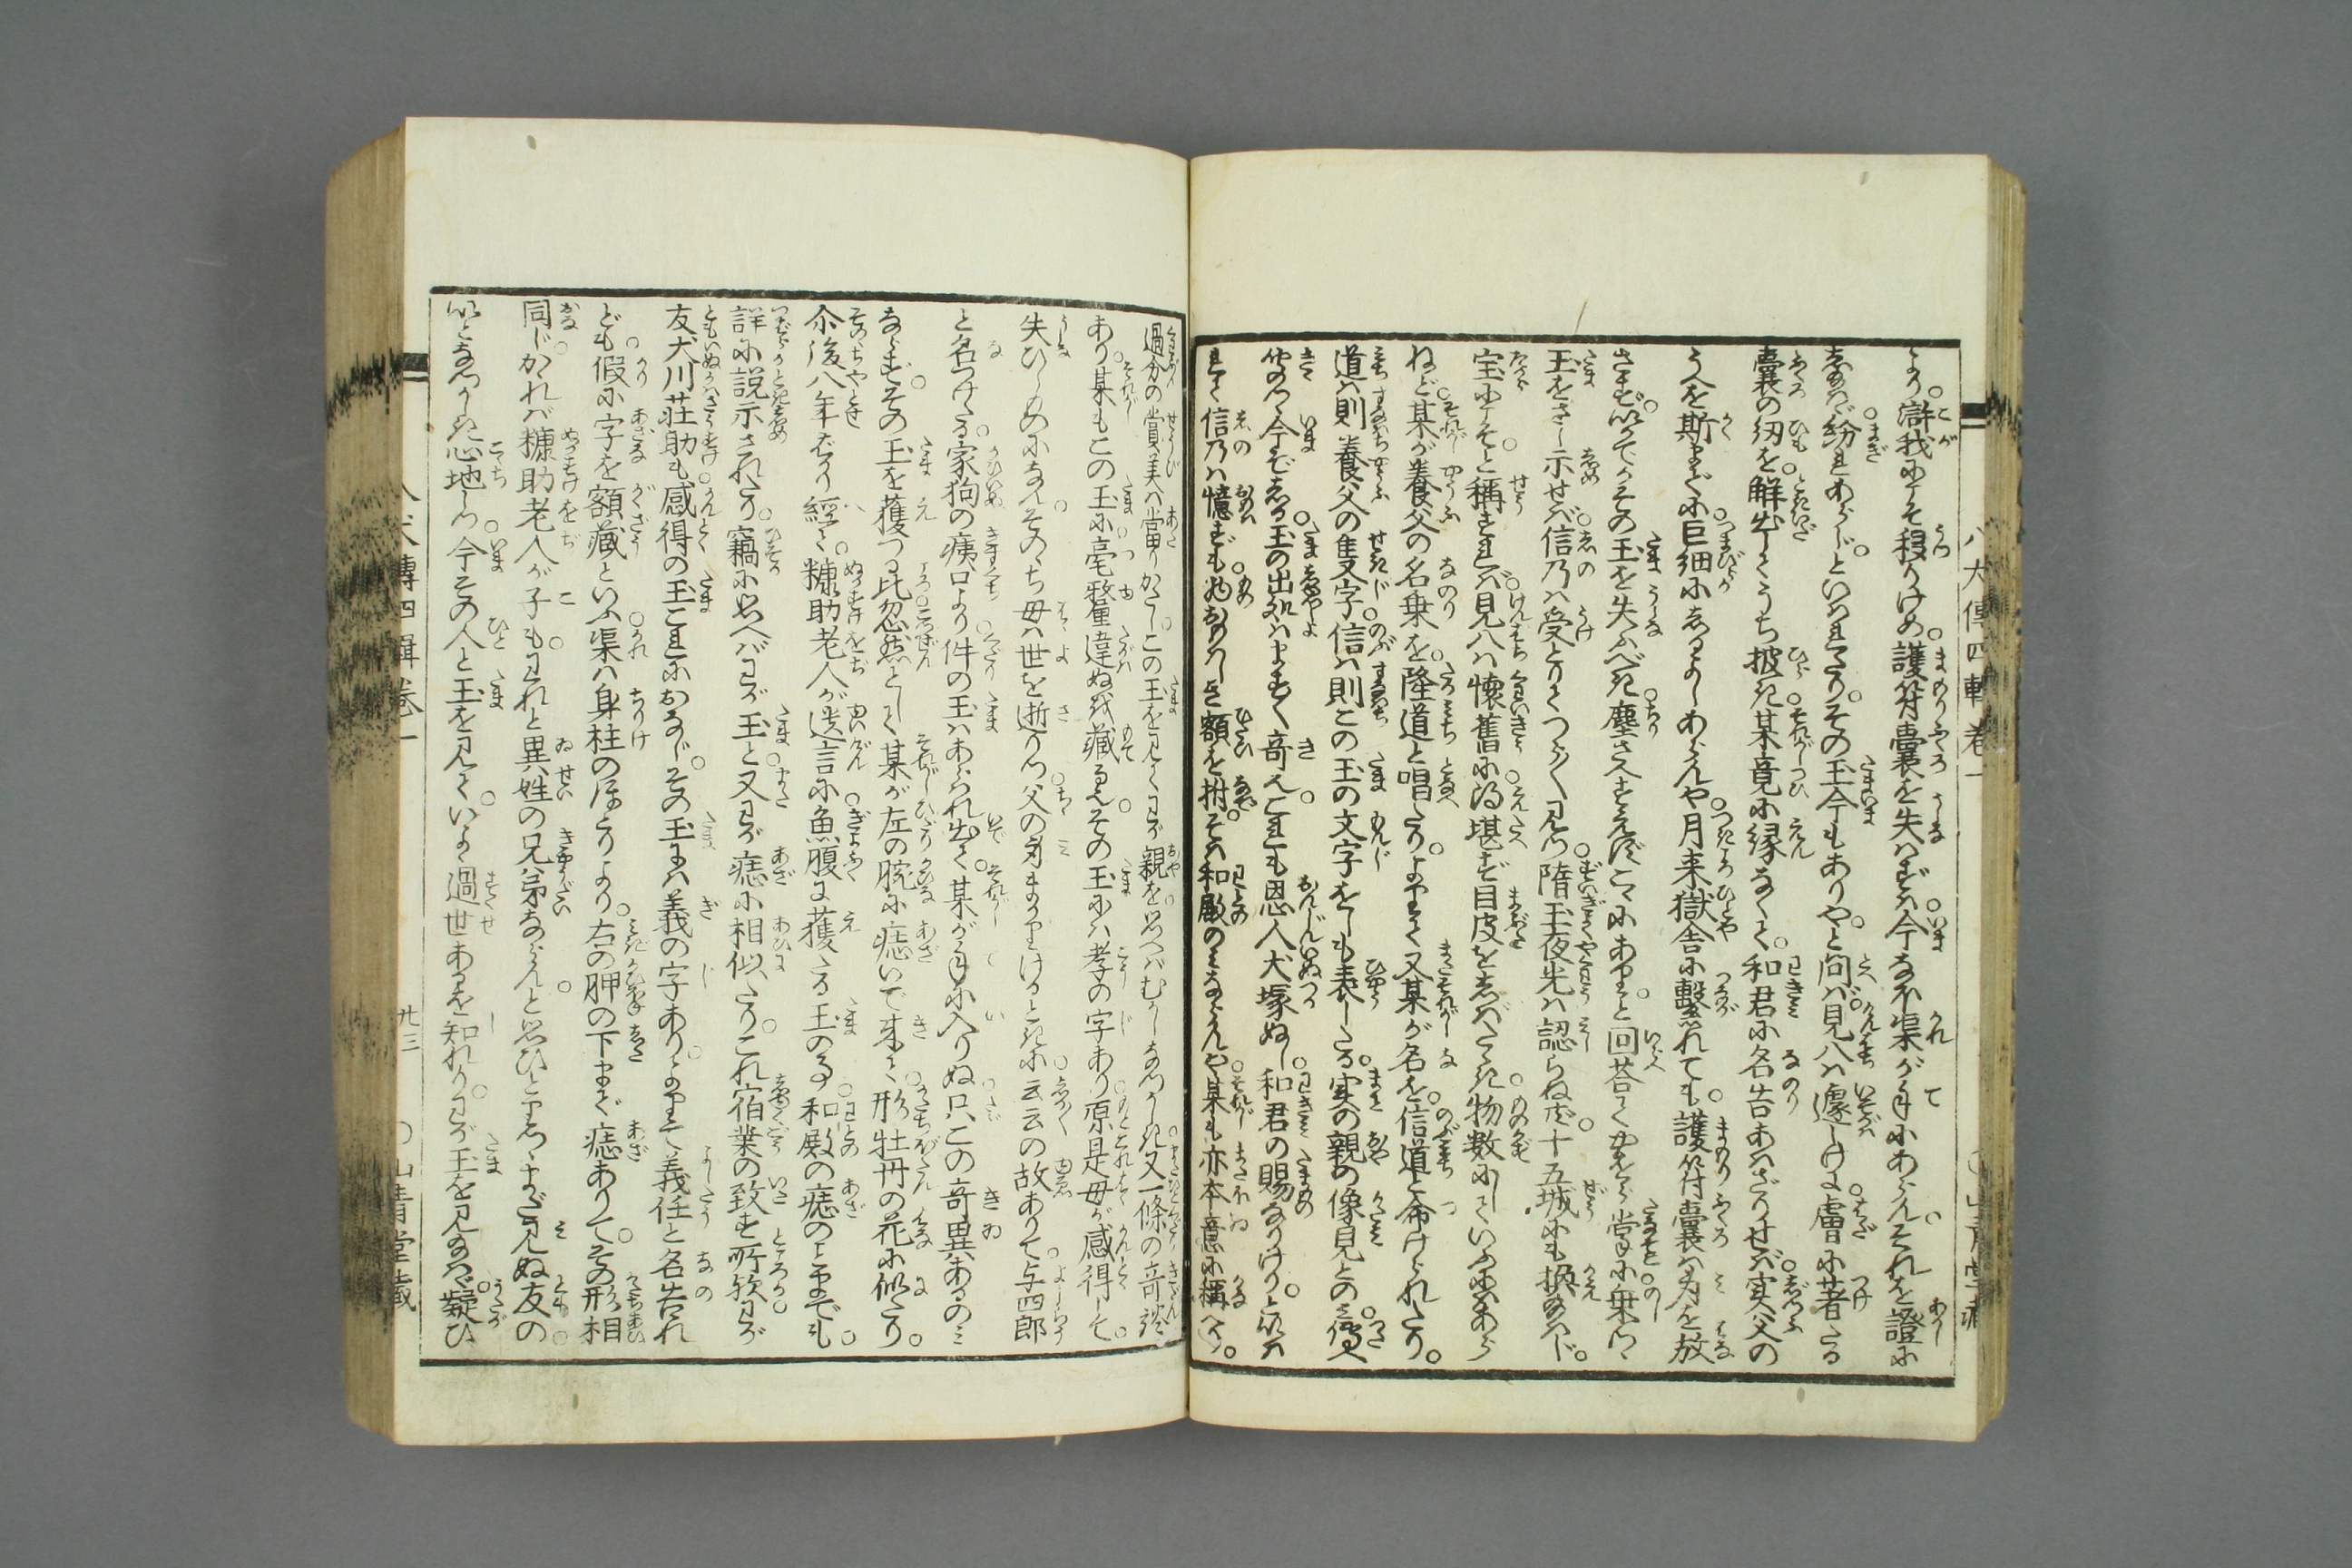 より。滸我にこそ移りけめ。護符嚢を失はずは。今なほ渠が手にあらん。それを證に
しなば。紛れあらじといはれたり。その玉今もありや。と問ば。見八は遽しげに。膚に著たる
嚢の紐を。解出してうち披き。某竟に縁なくて。和君に名告あはざりせば。実父の
うへを斯までに。巨細にしるよしあらんや。月来獄舎に繋れても。護符嚢は身を放
さず。いかでかその玉を失ふべき。塵さへすえずこゝにあり。と回答て
玉をさし示せば。信乃は受とりてつく〲見つ。隋玉夜光は認らねど。十五城にも換なへじ。
宝にこそ。と稱すれば。見八は懐舊に得堪ず目皮をしばたゝき。物数にしていふにあら
ねど。某が養父の名乗を。隆道と唱たり。よりて又某が名を。信道と命けられたり。
道は則養父の隻字。信は則この玉の文字をしも表したる。実の親の像見との。傳へ
きゝつゝ今ぞしる。玉の出処はます〱奇也。これも恩人犬塚ぬし。和君の賜なりけり。といへば
信乃は憶ずも。
額を拊。そは和殿のみならんや。某も亦本意に稱へり。
過分の賞美は當りがたし。この玉を見てわが親を思へば。むかしなつかしき。又一條の奇談
あり。某もこの玉に。毫釐違ぬを藏めて。その玉には孝の字あり。原是母が感得して。
失ひしものになん。そのゝち母は世を逝りつ。父の
ときに。云云の故ありて。与四郎
と名つけたる。家狗の痍口より。件の玉はあらはれ出て。某が手に入りぬ。只この奇異あるのみ
ならず。その玉を獲つる比。忽然として。某が左の腕に。痣いで来て。形牡丹の花に似たり。
尒後八年ばかり經て。糠助老人が遺言に。魚腹に獲たる玉の事。和殿の痣のことまでも。
詳に説示されたり。竊に思へばわが玉と。又わが痣に相似たり。これ宿業の致す所歟。わが
友犬川荘助も。感得の玉これにおなじ。その玉には義の字あり。よりて義任と名告れ
ども。假に字を額藏といふ。渠は身柱のほとりより。右の胛の下まで痣ありて。その形相
同じかれば。糠助老人が子も。われと異姓の兄弟ならん。と思ひとりつゝ。まだ見ぬ友の
いとなつかしき心地しつ。今その人と玉を見て。いよゝ過世あるを知れり。わが玉を見なば疑ひ
八犬傳四輯巻一
廿三
〇山青堂藏
八犬傳四輯巻一